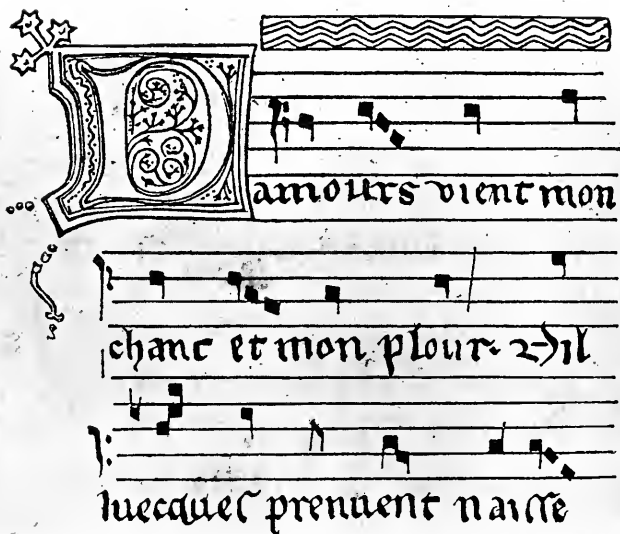 Damours vient mon
chant et mon plour. Et il
luecques prennent naisse